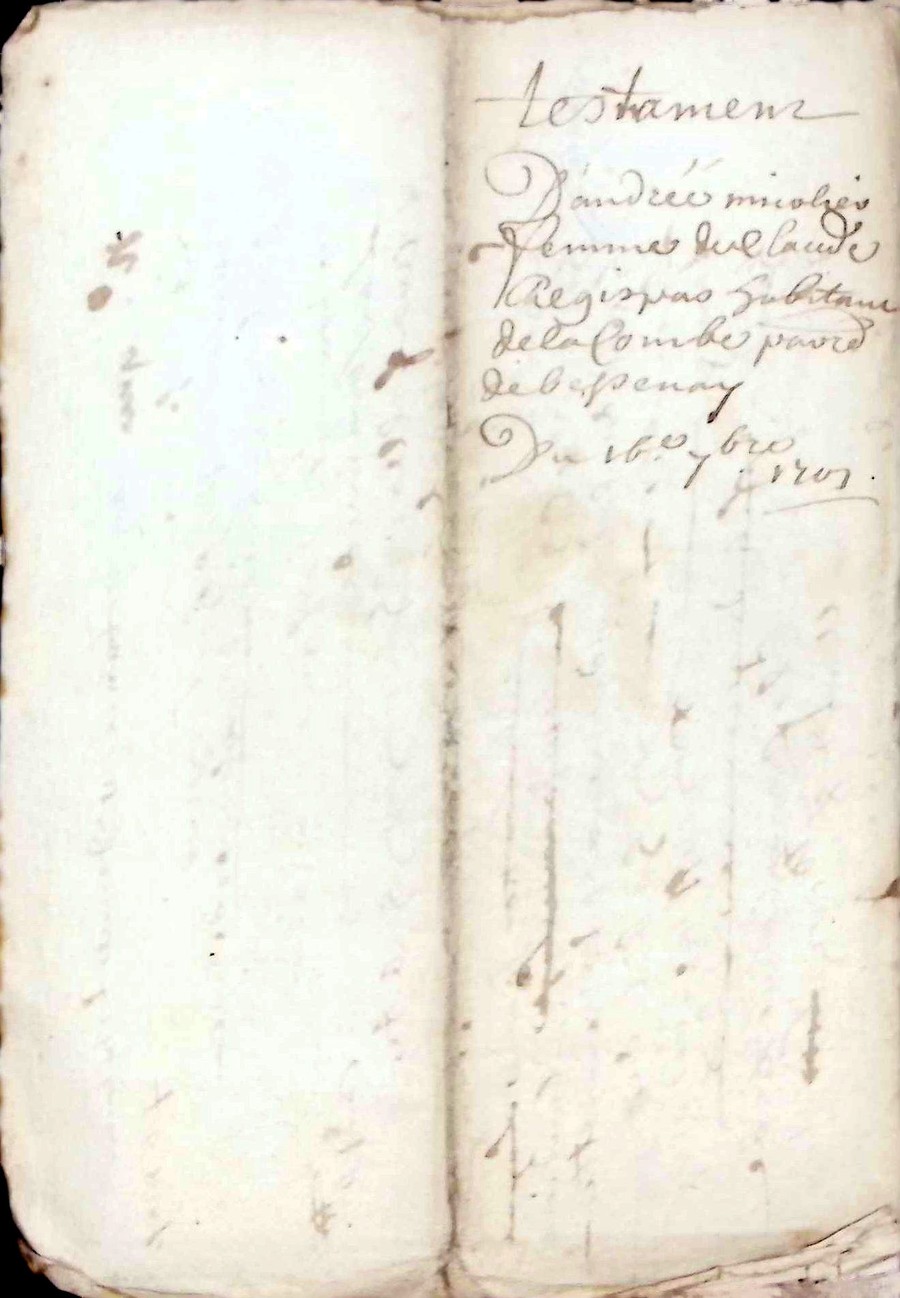 testament
D'andréé micolier
femme de Claude
Regispas habitant
de la Combe parre
de bessenay
Du 16.e 7bre
1701.